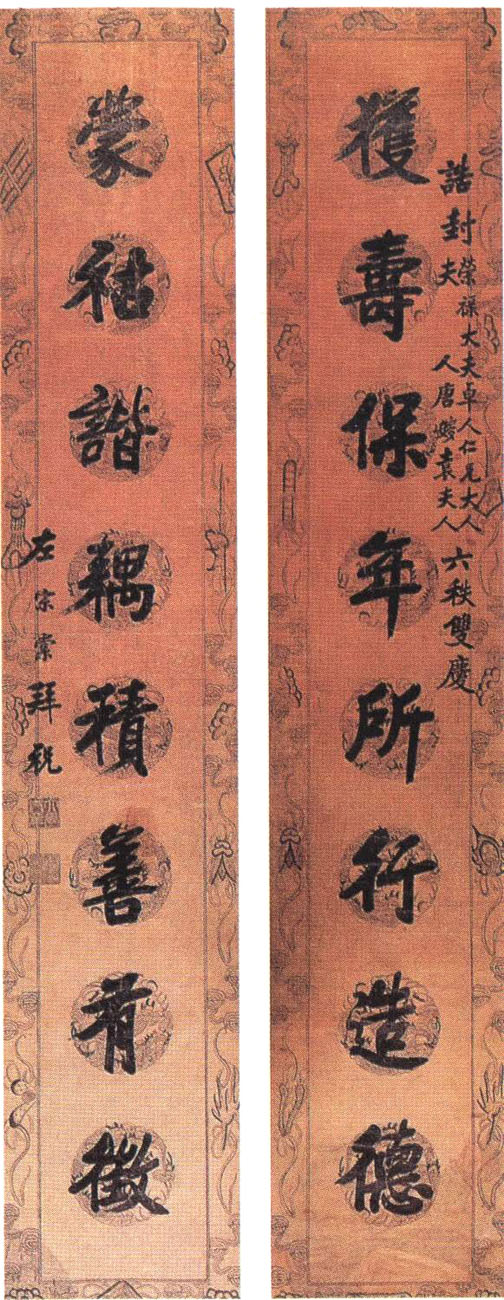 誥封
榮祿大夫卓人仁兄大人
夫人唐嫂袁夫人
六秩雙慶
獲壽保年所行造德
蒙祜諧耦積善有徵
左宗棠拜祝